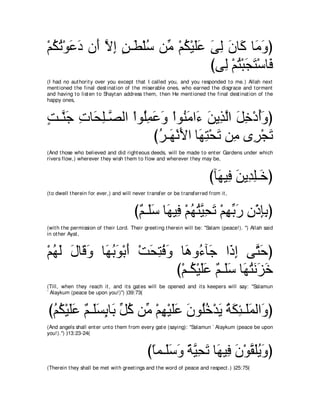 وَمَا كَانَ لِىَ عَلَيْكُمْ مِّن سُلْطَـنٍ إِلاَّ أَن دَعَوْتُكُمْ
فَاسْتَجَبْتُمْ لِى)
(I had no authority over you except that I called you, and you responded to me.) Allah next mentioned the final destination of the miserable ones, who earned the disgrace and torment and having to listen to Shaytan address them, then He mentioned the final destination of the happy ones,
(وَأُدْخِلَ الَّذِينَ ءَامَنُواْ وَعَمِلُواْ الصَّـلِحَاتِ جَنَّـتٍ
تَجْرِى مِن تَحْتِهَا الاٌّنْهَـرُ)
(And those who believed and did righteous deeds, will be made to enter Gardens under which rivers flow,) wherever they wish them to flow and wherever they may be,
(خَـلِدِينَ فِيهَآ)
(to dwell therein for ever,) and will never transfer or be transferred from it,
(بِإِذْنِ رَبِّهِمْ تَحِيَّتُهُمْ فِيهَا سَلَـمٌ)
(with the permission of their Lord. Their greeting therein will be: "Salam (peace!). ") Allah said in other Ayat,
(حَتَّى إِذَا جَآءُوهَا وَفُتِحَتْ أَبْوَبُهَا وَقَالَ لَهُمْ
خَزَنَتُهَا سَلَـمٌ عَلَيْكُـمْ)
(Till, when they reach it, and its gates will be opened and its keepers will say: "Salamun `Alaykum (peace be upon you!)") 39:73)(
(وَالمَلَـئِكَةُ يَدْخُلُونَ عَلَيْهِمْ مِّن كُلِّ بَابٍ سَلَـمٌ عَلَيْكُمُ)
(And angels shall enter unto them from every gate (saying): "Salamun `Alaykum (peace be upon you!).") )13:23-24(
(وَيُلَقَّوْنَ فِيهَا تَحِيَّةً وَسَلَـماً)
(Therein they shall be met with greetings and the word of peace and respect.) )25:75(